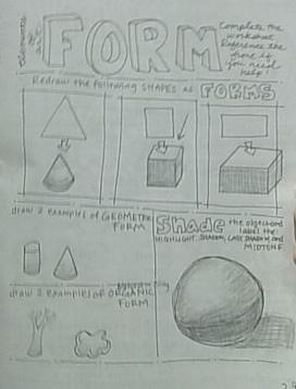 elements of art
FORM
Complete the
worksheet
Reference the
one if
you need
help!
Redraw the following SHAPES as FORMS
draw 2 examples of GEOMETRIC
FORM
Shade the object and
label the
HIGHLIGHT, SHADOW, CAST SHADOW and
MIDTONE
draw 2 examples OF ORGANIC
FORM